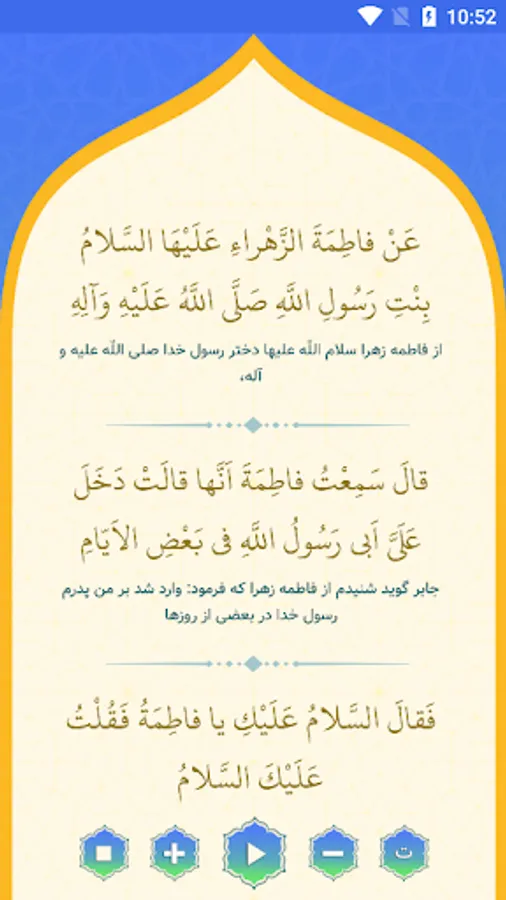 10:52
عَنْ فاطِمَةَ الزَّهْراءِ عَلَيْهَا السَّلامُ
بِنْتِ رَسُولِ اللَّهِ صَلَّى اللَّهُ عَلَيْهِ وَآلِهِ
از فاطمه زهرا سلام اللّه علیها دختر رسول خدا صلی اللّه علیه و
آله،
قالَ سَمِعْتُ فاطِمَةَ اَنَّها قالَتْ دَخَلَ
عَلَىَّ اَبى رَسُولُ اللَّهِ فى بَعْضِ الاَيّامِ
جابر گوید شنیدم از فاطمه زهرا که فرمود: وارد شد بر من پدرم
رسول خدا در بعضی از روزها
فَقالَ السَّلامُ عَلَيْكِ يا فاطِمَةُ فَقُلْتُ
عَلَيْكَ السَّلامُ
ت